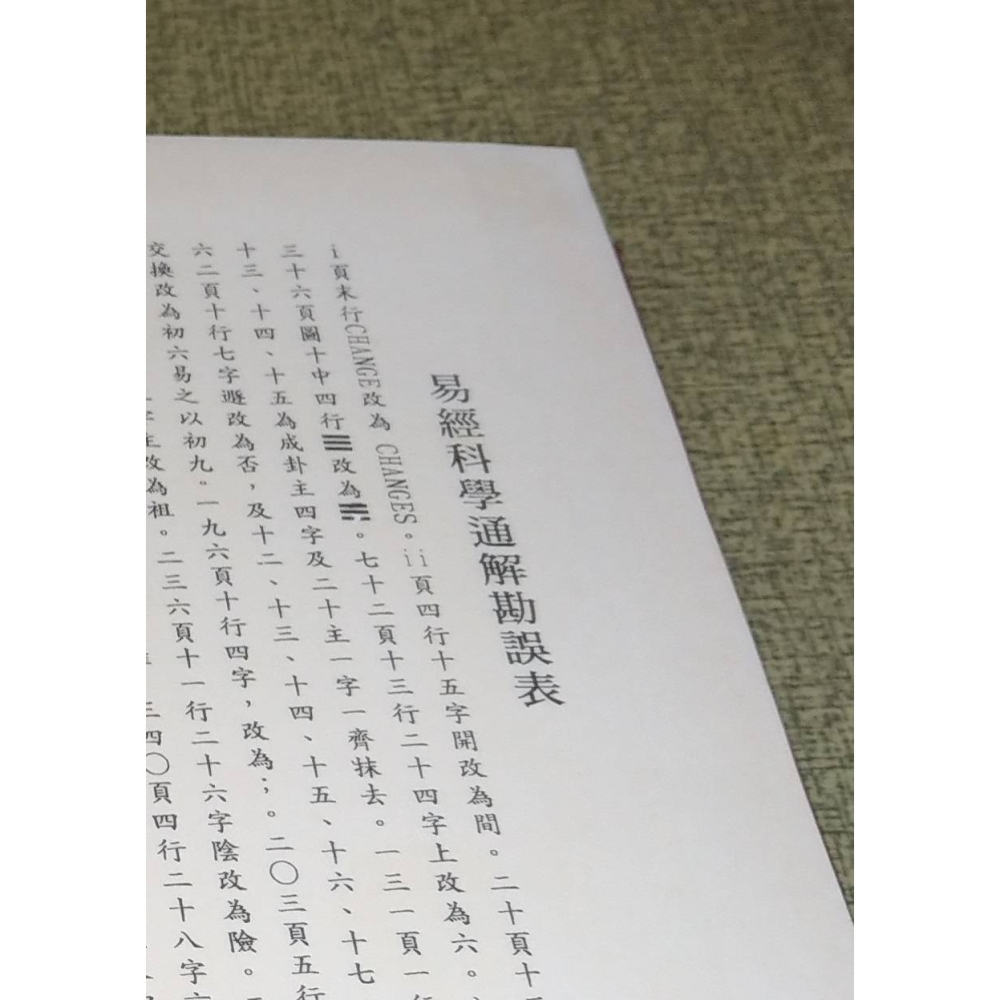 易經科學通解勘誤表
i頁末行CHANGE改為 CHANGES。ii頁四行十五字開改為間。二十頁十
三十六頁圖十中四行𝌆改為。七十二頁十三行二十四字上改為六。
十三、十四、十五為成卦主四字及二十主一字一齊抹去。一三一頁一行
六二頁十行七字遯改為否，及十二、十三、十四、十五、十六、十七
交換改為初六易之以初九。一九六頁十行四字，改為；。二〇三頁五行
改為祖。二三六頁十一行二十六字陰改為險。
三四〇頁四行二十八字